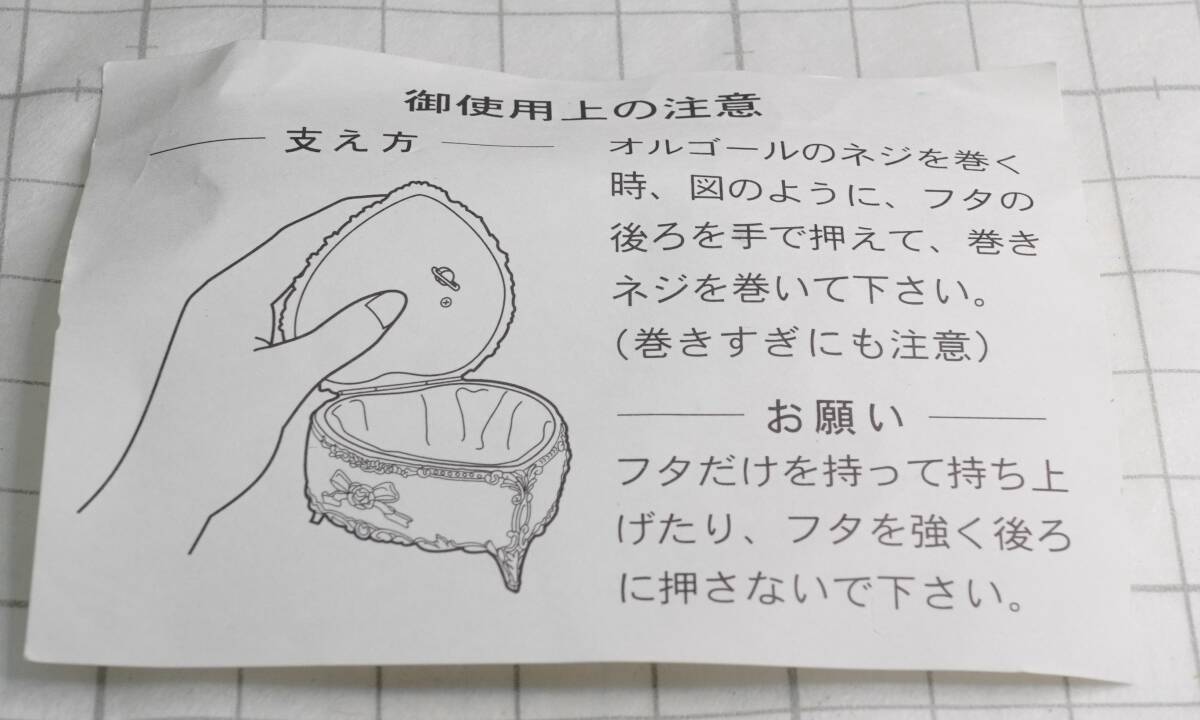 御使用上の注意
支え方
オルゴールのネジを巻く
時、図のように、フタの
後ろを手で押えて、巻き
ネジを巻いて下さい。
(巻きすぎにも注意)
お願い
フタだけを持って持ち上
げたり、フタを強く後ろ
に押さないで下さい。